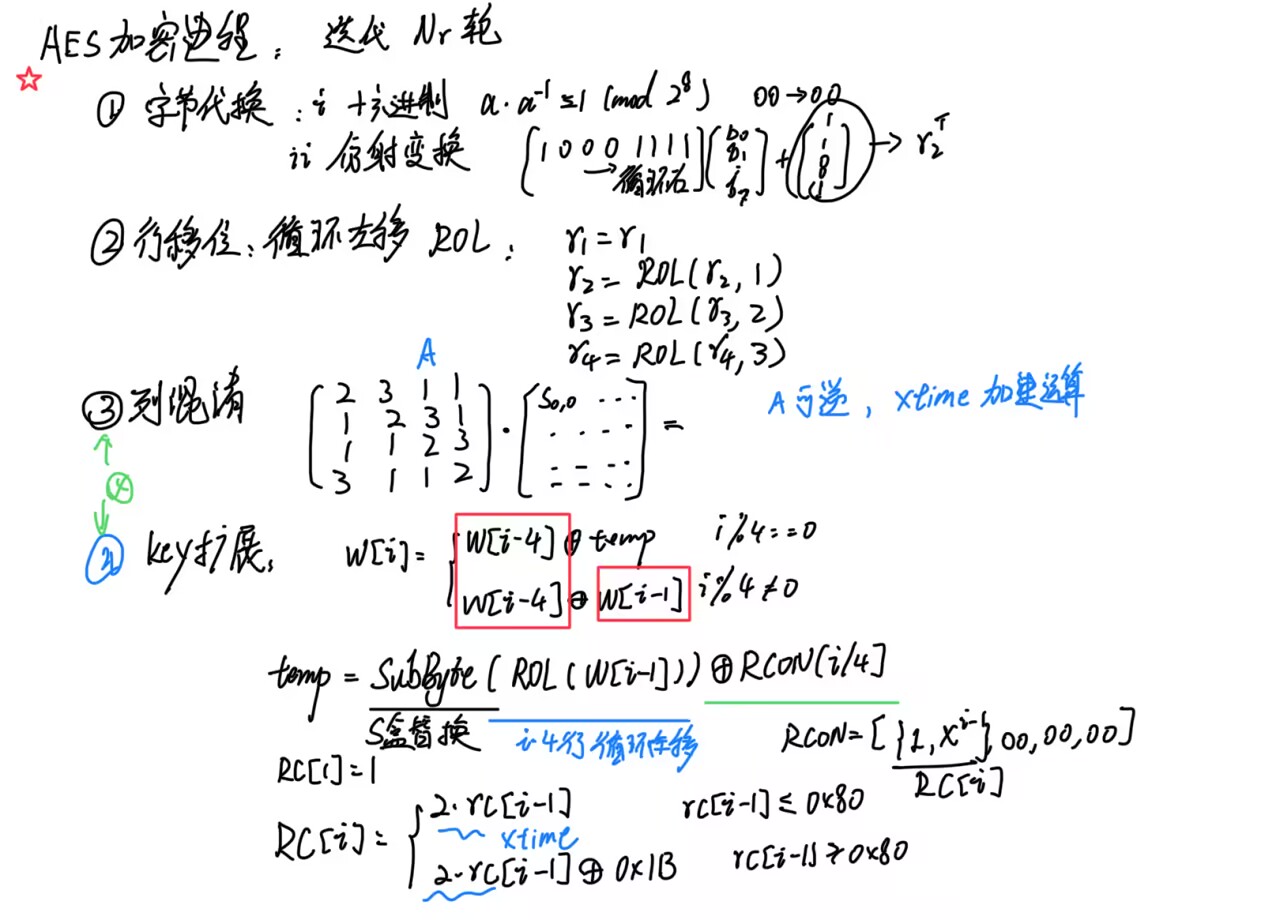 AES加密过程: 迭代 Nr轮
☆
① 字节代换: i 十六进制 a·a⁻¹≡1 (mod 2⁸) 00→00
ii 仿射变换 [1 0 0 0 1 1 1 1] [b0 b1 ⋮ b7] + [1 1 8 1] → r₂ᵀ
→循环右
② 行移位: 循环左移 ROL:
r₁=r₁
r₂= ROL(r₂, 1)
r₃=ROL(r₃, 2)
r₄=ROL(r₄, 3)
A
③ 列混淆 · =
2 3 1 1 S₀,₀ ···
1 2 3 1 · · · ·
1 1 2 3
3 1 1 2
A可逆, xtime 加速运算
④
④ key扩展, W[i]=
W[i-4]⊕temp i%4==0
W[i-4]⊕W[i-1] i%4≠0
temp = SubByte(ROL(W[i-1]))⊕RCON[i/4]
S盒替换 循环左移
RCON=[{1,xⁱ⁻¹},00,00,00]
RC[i]
RC[1]=1
RC[i]=
2·rc[i-1] rc[i-1]≤0x80
xtime
2·rc[i-1]⊕0x1B rc[i-1]≥0x80